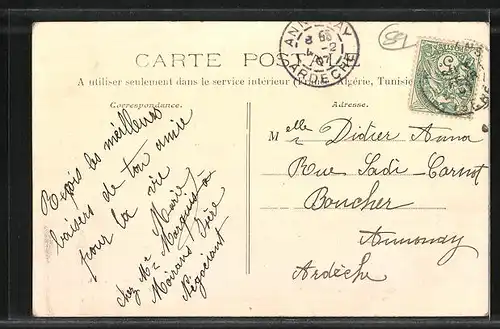 CARTE POSTALE
A utiliser seulement dans le service intérieur (France, Algérie, Tunisie
Correspondance.
Adresse.
ANNONAY
ARDECHE
Reçois les meilleurs
baisers de ton amie
pour la vie
Marie
chez Mr
Moirans Isère
Négociant
Melle Didier Anna
Rue Sadi-Carnot
Boucher
Annonay
Ardèche